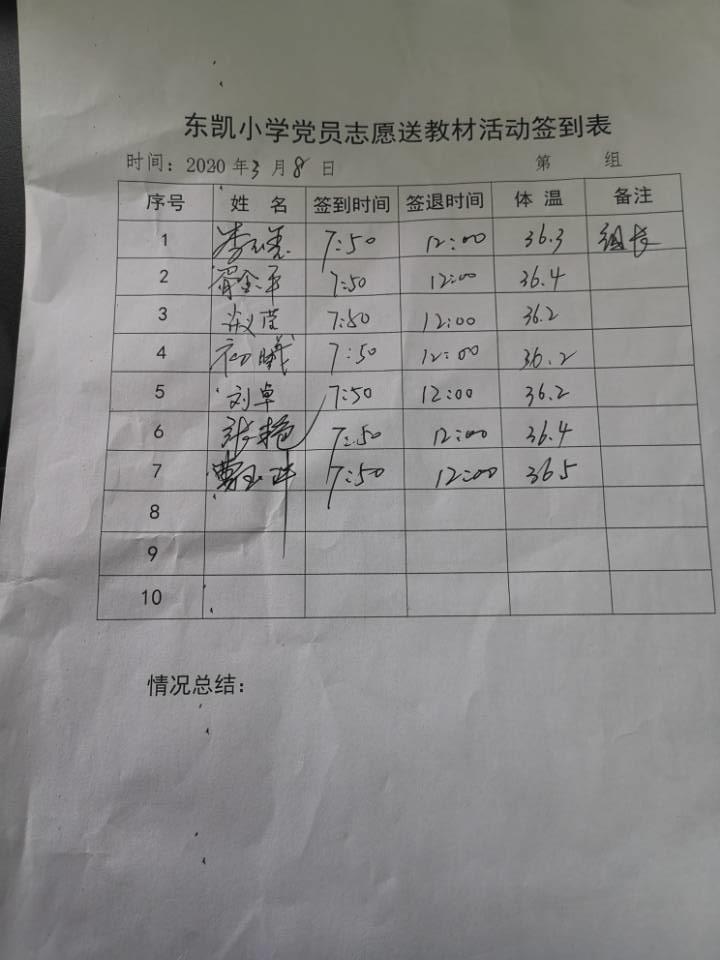 东凯小学党员志愿送教材活动签到表
时间：2020年3月8日 第 组
序号 姓 名 签到时间 签退时间 体 温 备注
1 7:50 12:00 36.3 组长
2 7:50 12:00 36.4
3 7:50 12:00 36.2
4 初曦 7:50 12:00 36.2
5 刘卓 7:50 12:00 36.2
6 张艳 7:50 12:00 36.4
7 7:50 12:00 36.5
8
9
10
情况总结：